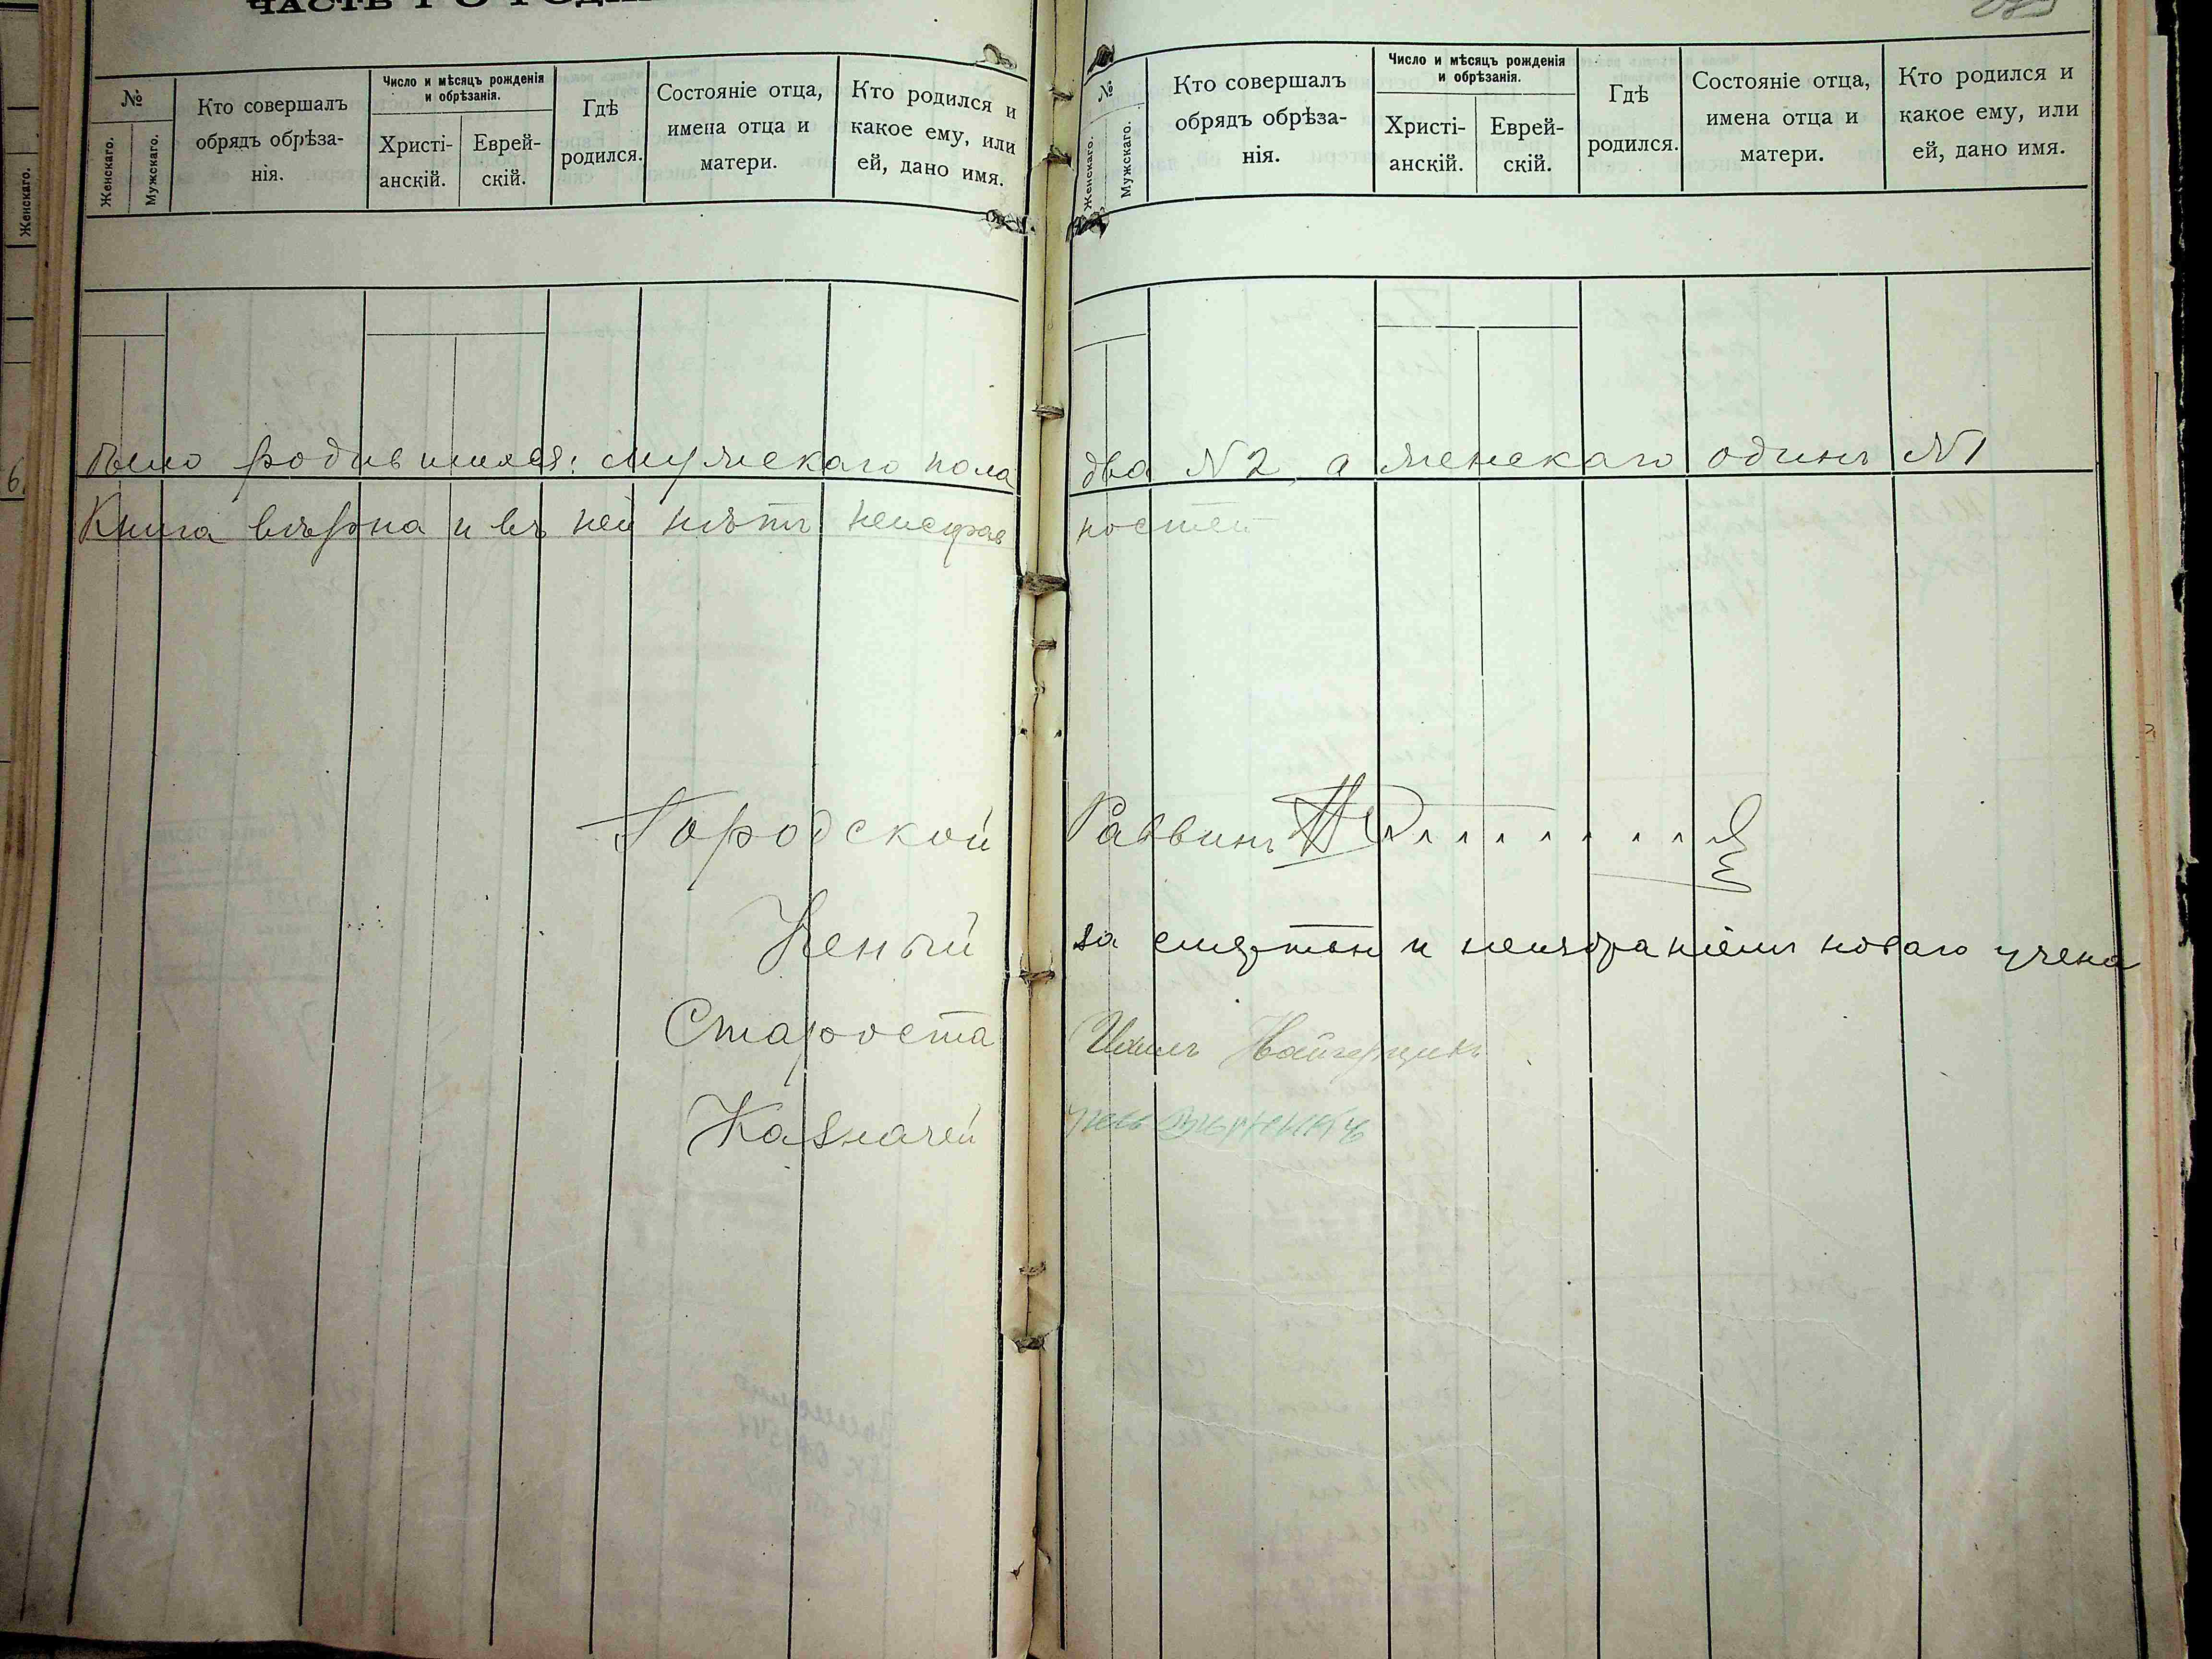 ЧАСТЬ I О РОДИ
№
Женскаго.
Мужскаго.
Кто совершалъ
обрядъ обрѣза-
нія.
Число и мѣсяцъ рожденія
и обрѣзанія.
Христі-
анскій.
Еврей-
скій.
Гдѣ
родился.
Состояніе отца,
имена отца и
матери.
Кто родился и
какое ему, или
ей, дано имя.
№
Женскаго.
Мужскаго.
Кто совершалъ
обрядъ обрѣза-
нія.
Число и мѣсяцъ рожденія
и обрѣзанія.
Христі-
анскій.
Еврей-
скій.
Гдѣ
родился.
Состояніе отца,
имена отца и
матери.
Кто родился и
какое ему, или
ей, дано имя.
Женскаго.
было родившихся: мужскаго пола два №2, а женскаго одинъ №1
Книга вѣрна и въ ней нѣтъ неисправ ностей
Городской Раввинъ
Ученый за смертью и неизбраніемъ новаго учена
Староста
Казначей